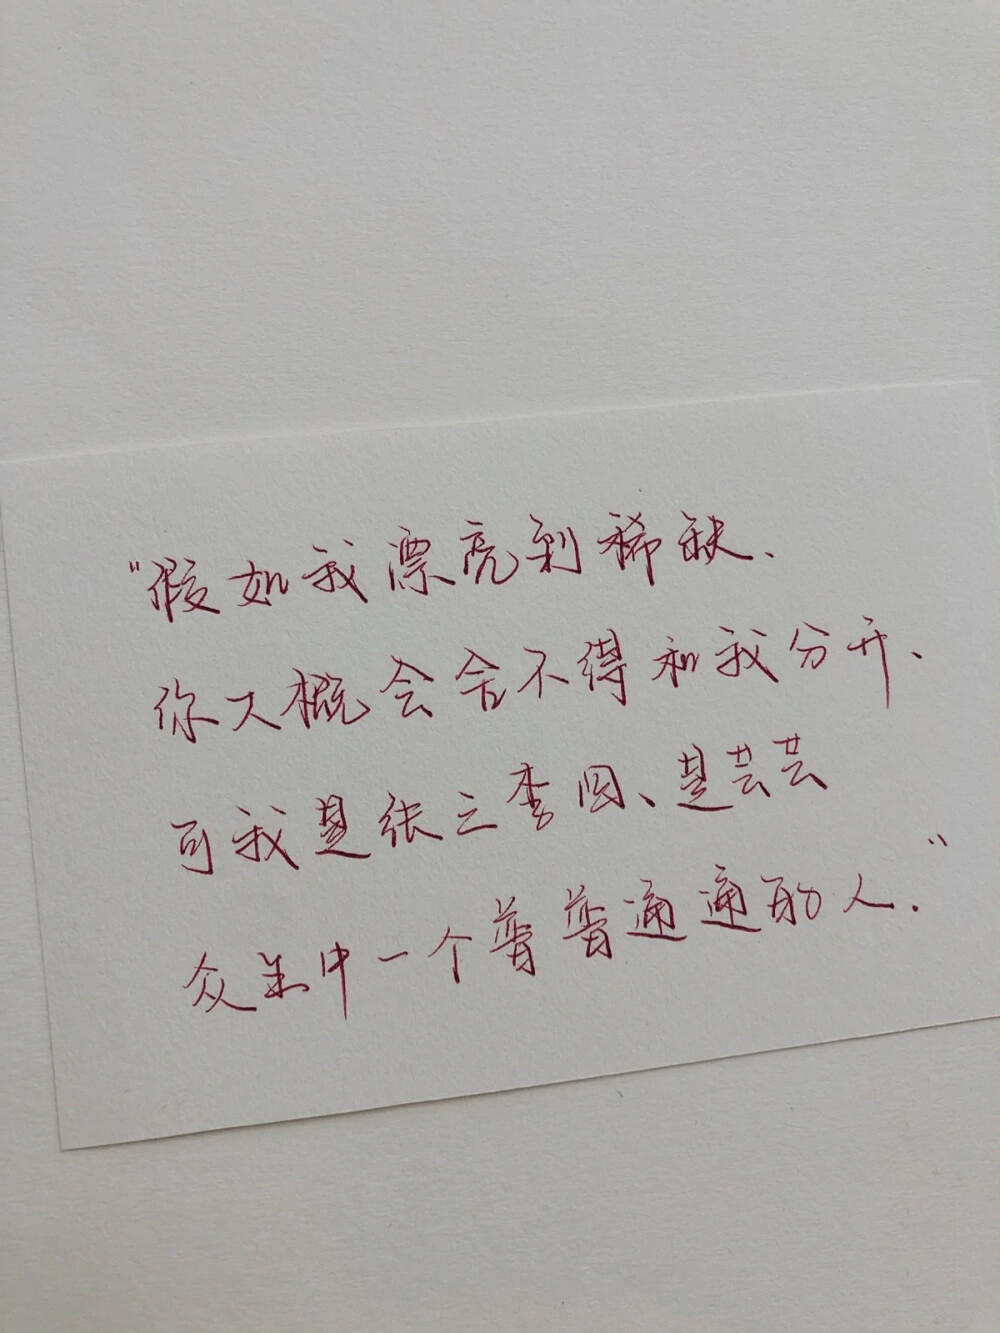 “假如我漂亮到稀缺、
你大概会舍不得和我分开、
可我是张三李四、是芸芸
众生中一个普普通通的人.”